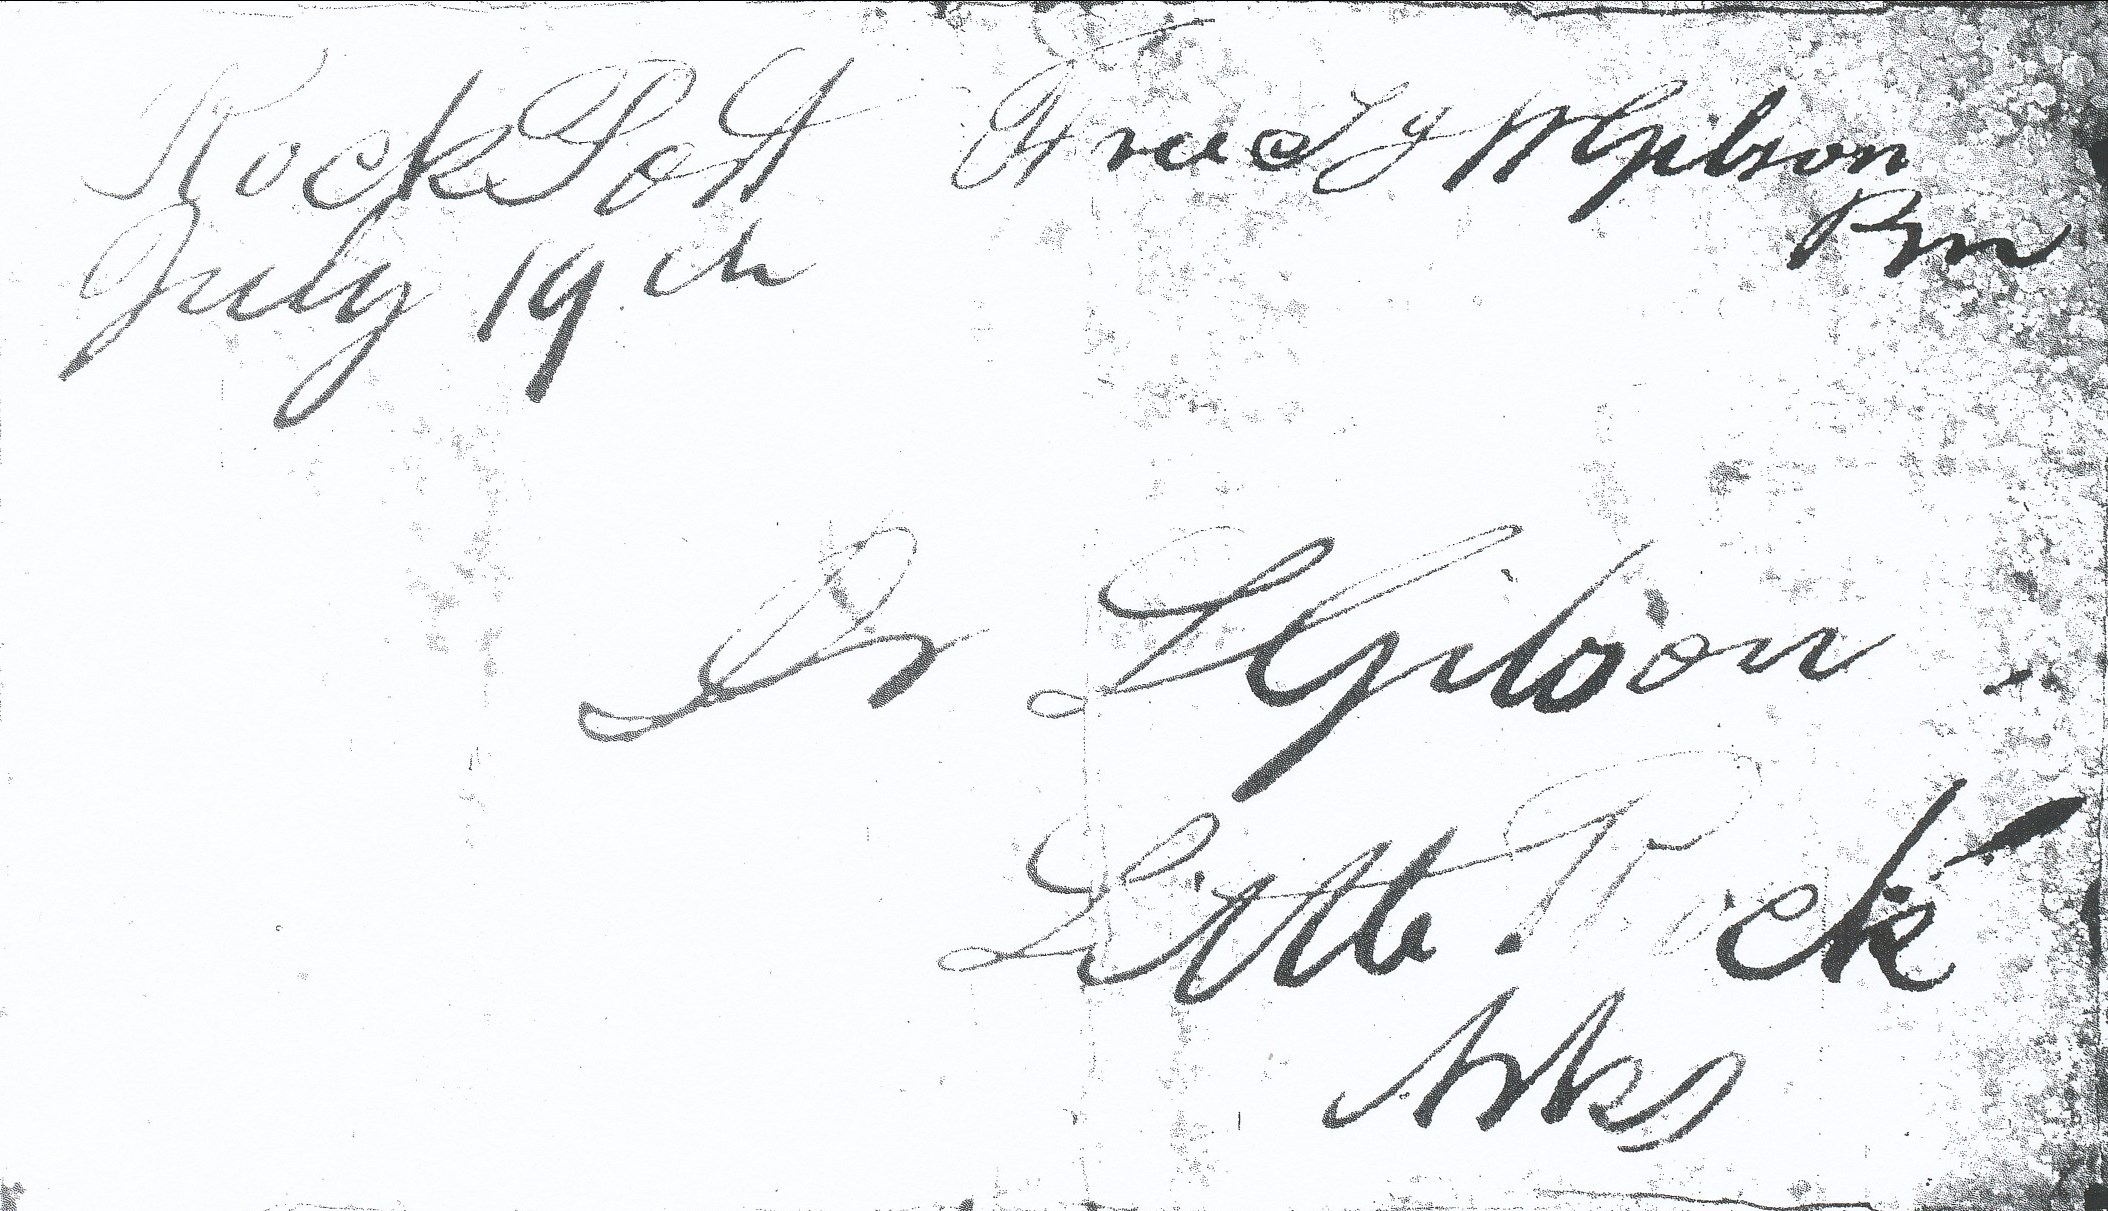 Rock Port Free W Gibson
Pm
July 19th
Dr L Gibson
Little Rock
Arks